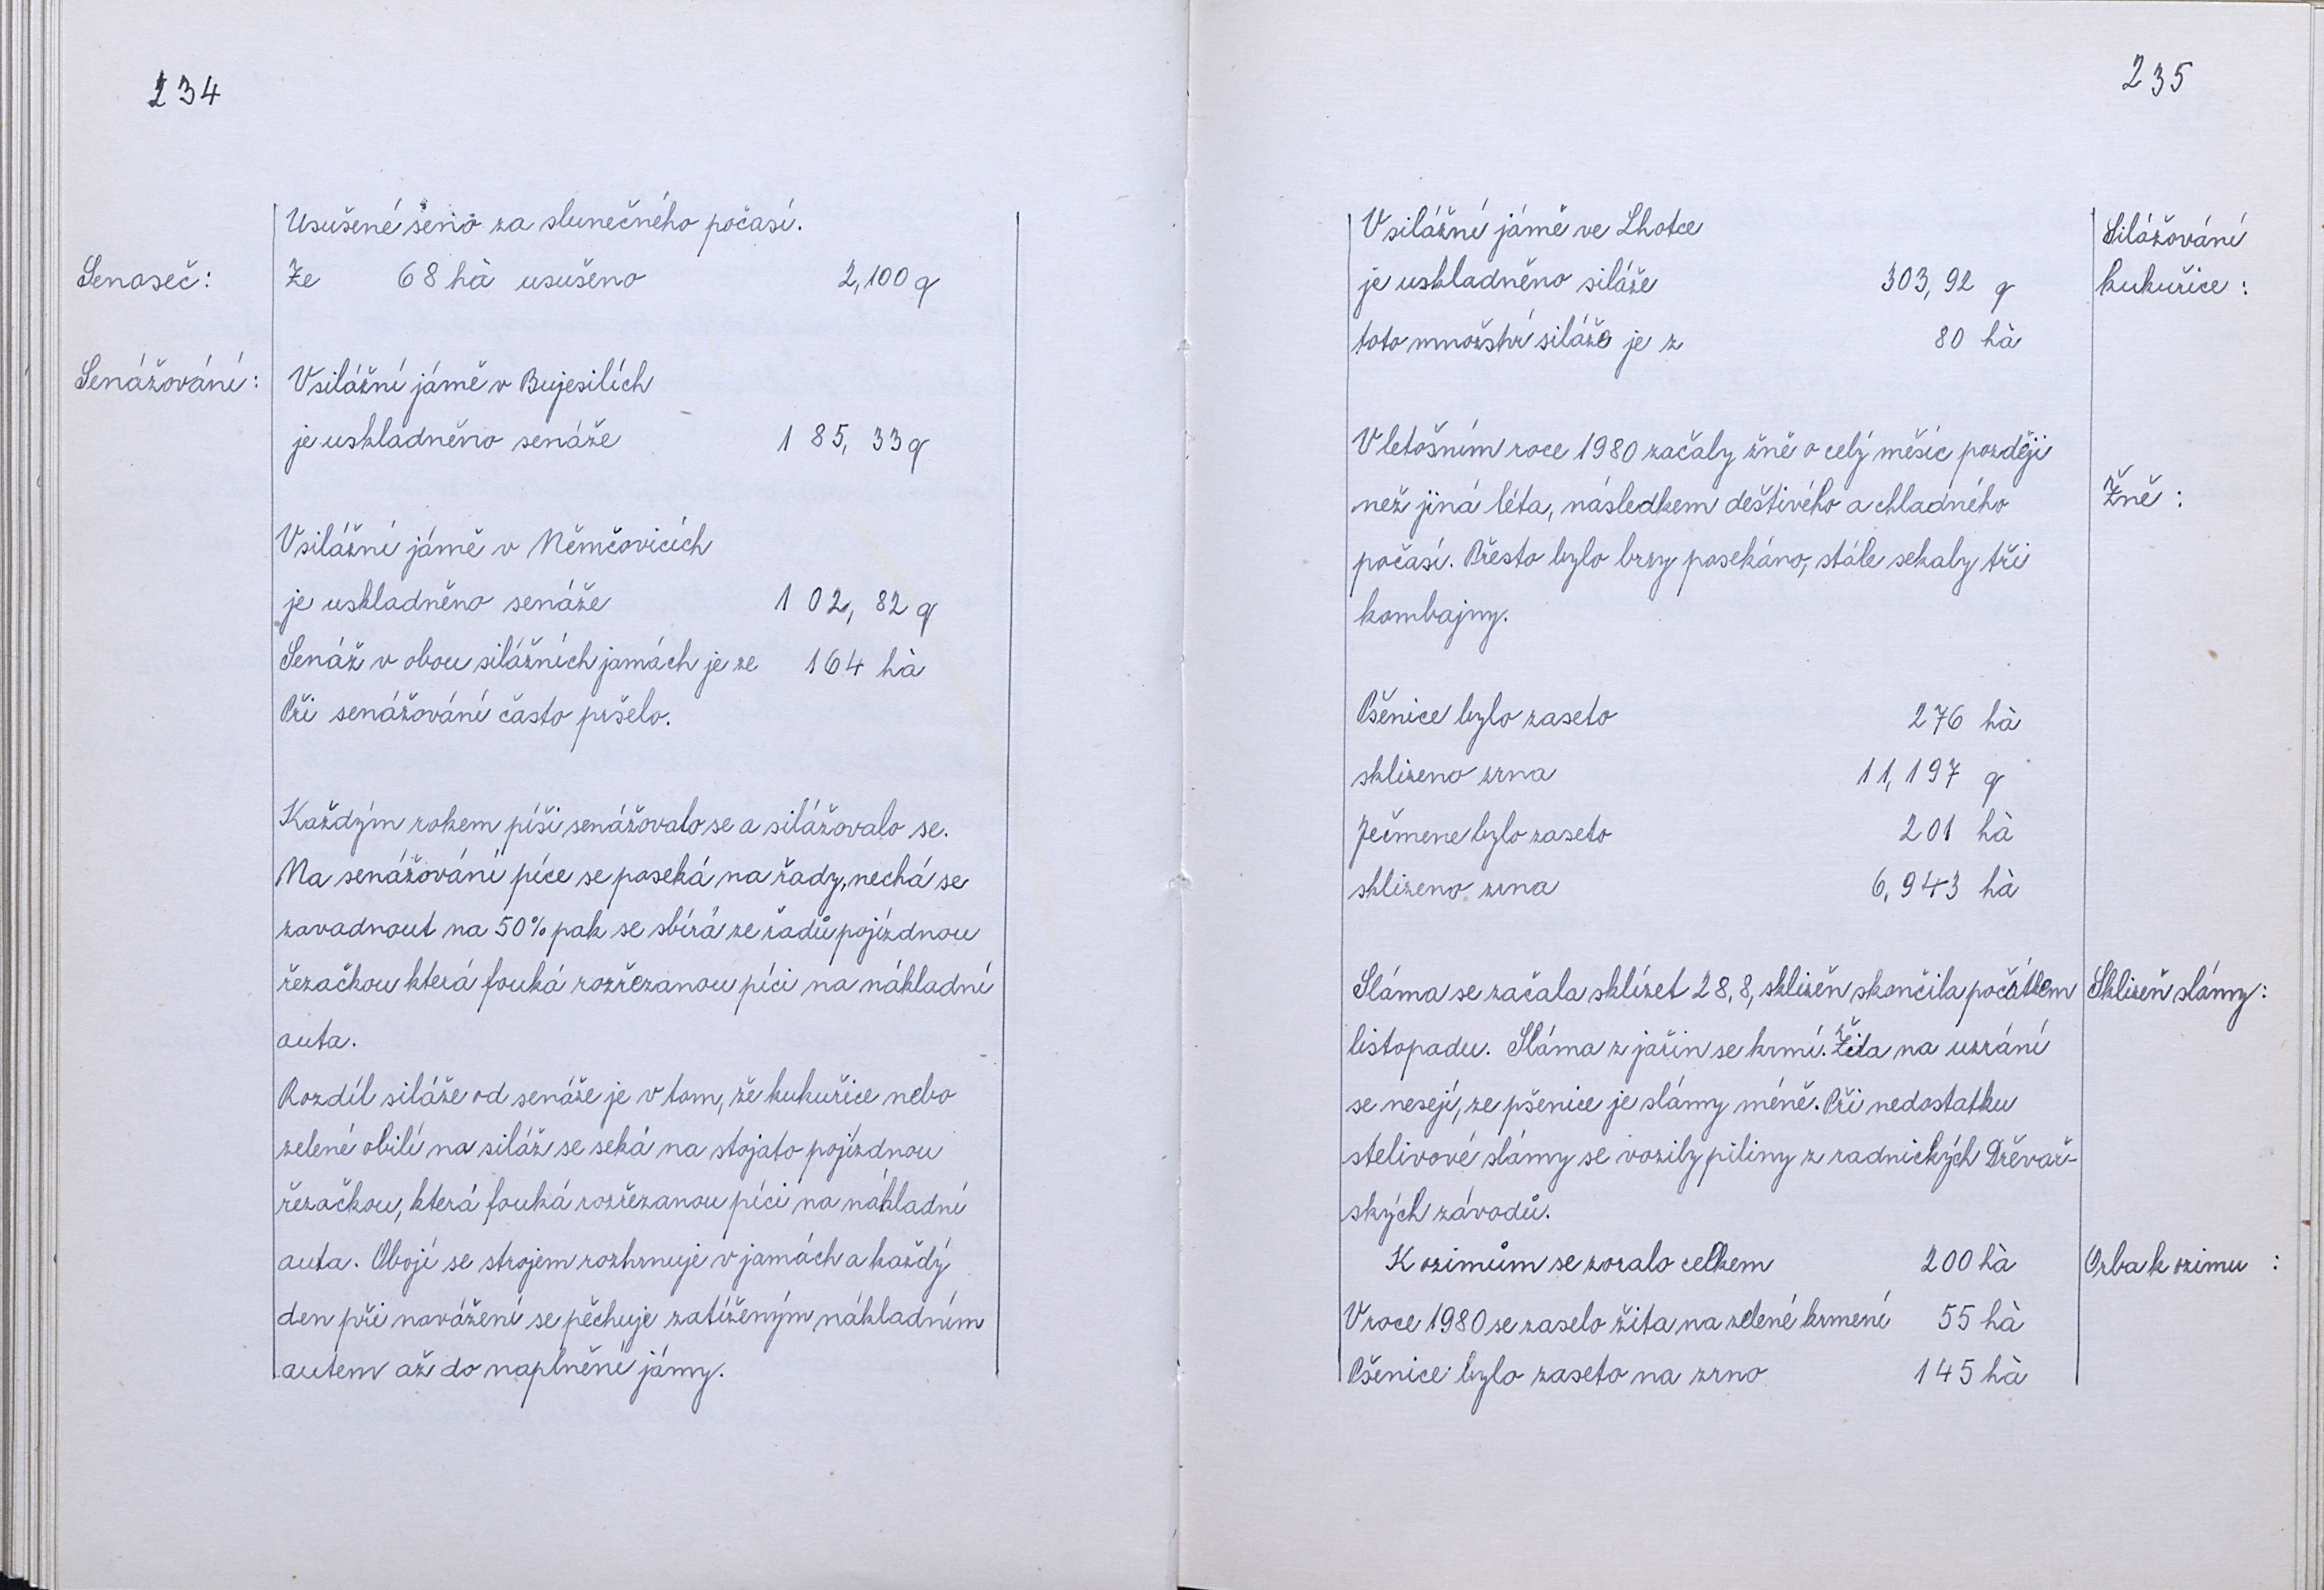 234
Usušené seno za slunečného počasí.
Senoseč:
Ze 68 hà usušeno 2,100 q
Senážování:
V silážní jámě v Bujesilích
je uskladněno senáže 185,33 q
V silážní jámě v Němčovicích
je uskladněno senáže 102,82 q
Senáž v obou silážních jamách je ze 164 hà
Při senážování často pršelo.
Každým rokem píši senážovalo se a silážovalo se.
Na senážování píce se poseká na řady, nechá se
zavadnout na 50% pak se sbírá ze řadů pojízdnou
řezačkou která fouká rozřezanou píci na nákladní
auta.
Rozdíl siláže od senáže je v tom, že kukuřice nebo
zelené obilí na siláž se seká na stojato pojízdnou
řezačkou, která fouká rozřezanou píci na nákladní
auta. Obojí se strojem rozhrnuje v jamách a každý
den při navážení se pěchuje zatíženým nákladním
autem až do naplnění jámy.
235
V silážní jámě ve Lhotce
je uskladněno siláže 303,92 q
toto množství siláže je z 80 hà
Silážování
kukuřice:
V letošním roce 1980 začaly žně o celý měsíc později
než jiná léta, následkem deštivého a chladného
počasí. Přesto bylo brzy posekáno, stále sekaly tři
kombajny.
Žně:
Pšenice bylo zaseto 276 hà
sklizeno zrna 11,197 q
Ječmene bylo zaseto 201 hà
sklizeno zrna 6,943 hà
Sláma se začala sklízet 28,8, sklizeň skončila počátkem
Sklizeň slámy:
listopadu. Sláma z jařin se krmí. Žita na uzrání
se nesejí, ze pšenice je slámy méně. Při nedostatku
stelivové slámy se vozily piliny z radnických Dřevař-
ských závodů.
K ozimům se zoralo celkem 200 hà
Orba k ozimu:
V roce 1980 se zaselo žita na zelené krmení 55 hà
Pšenice bylo zaseto na zrno 145 hà